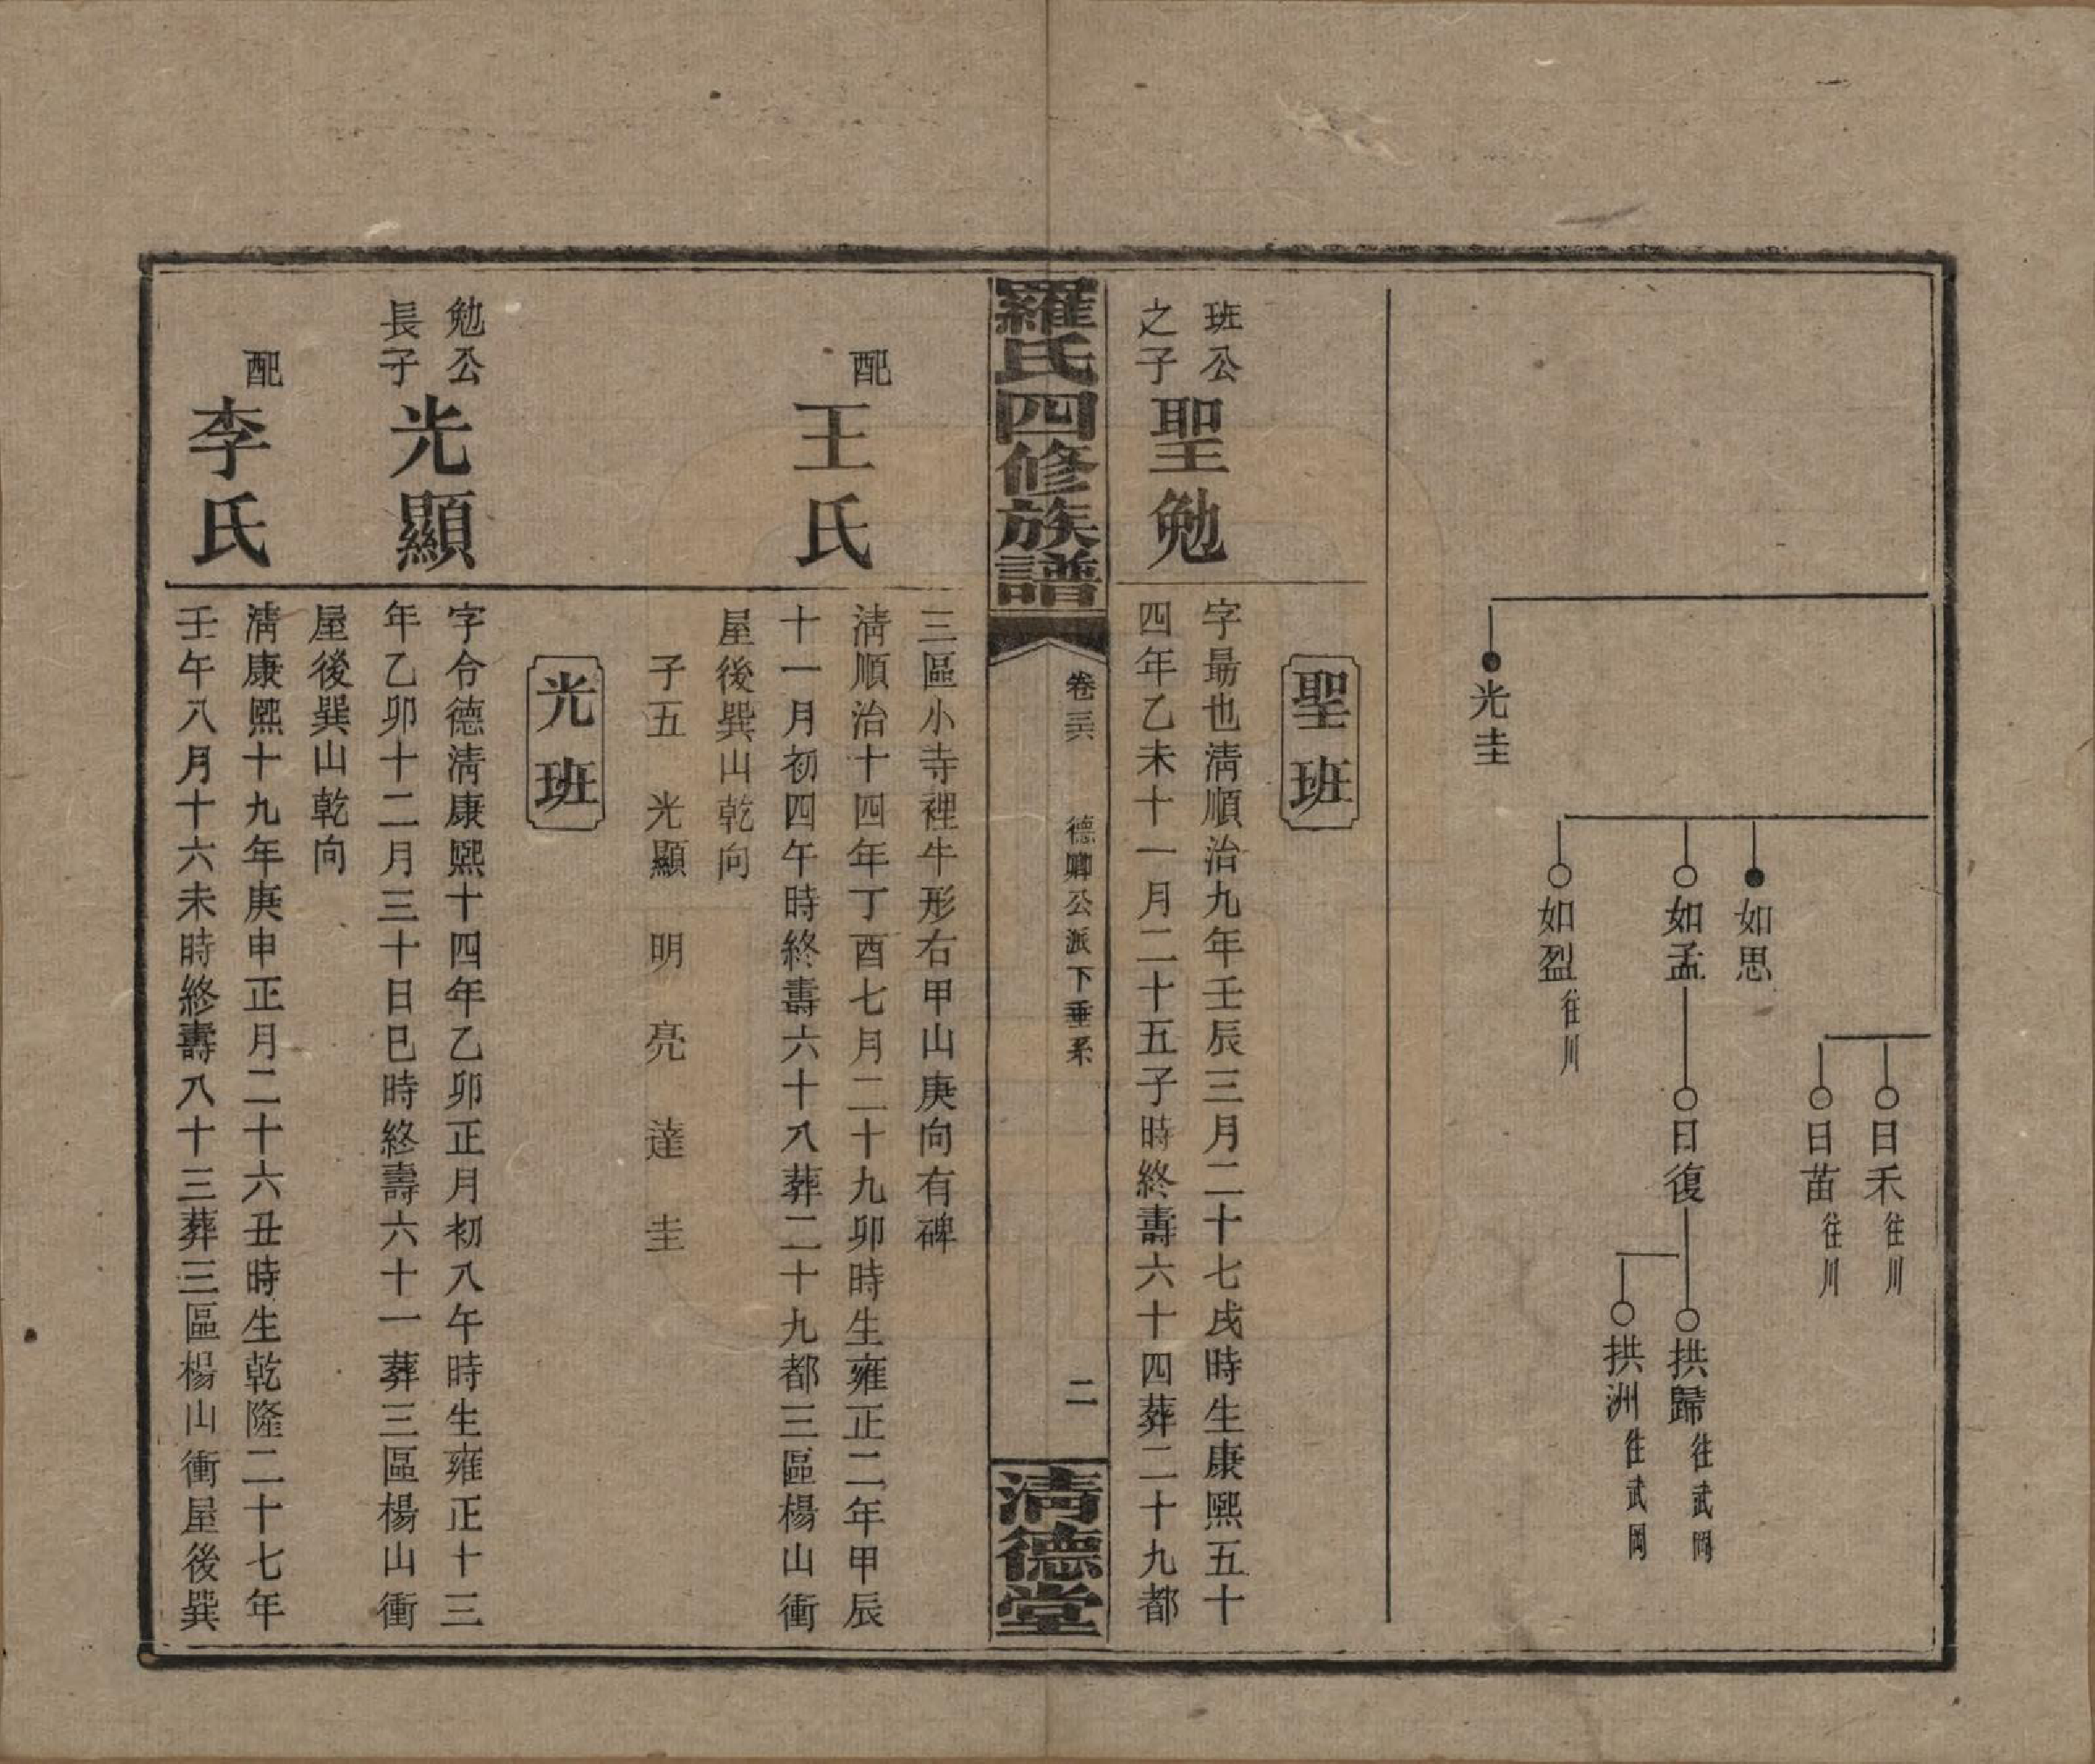 日禾 往川
日苗 往川
如思
如孟
日復
拱歸 往武岡
拱洲 往武岡
如盈 往川
光圭
聖班
班公
之子
聖勉
字最也清順治九年壬辰三月二十七戌時生康熙五十
四年乙未十一月二十五子時終壽六十四葬二十九都
羅氏四修族譜
卷三六
德卿公派下垂系
二
清德堂
三區小寺裡牛形右甲山庚向有碑
配
王氏
清順治十四年丁酉七月二十九卯時生雍正二年甲辰
十一月初四午時終壽六十八葬二十九都三區楊山衝
屋後巽山乾向
子五 光顯 明 亮 達 圭
光班
勉公
長子
光顯
字令德清康熙十四年乙卯正月初八午時生雍正十三
年乙卯十二月三十日巳時終壽六十一葬三區楊山衝
屋後巽山乾向
配
李氏
清康熙十九年庚申正月二十六丑時生乾隆二十七年
壬午八月十六未時終壽八十三葬三區楊山衝屋後巽